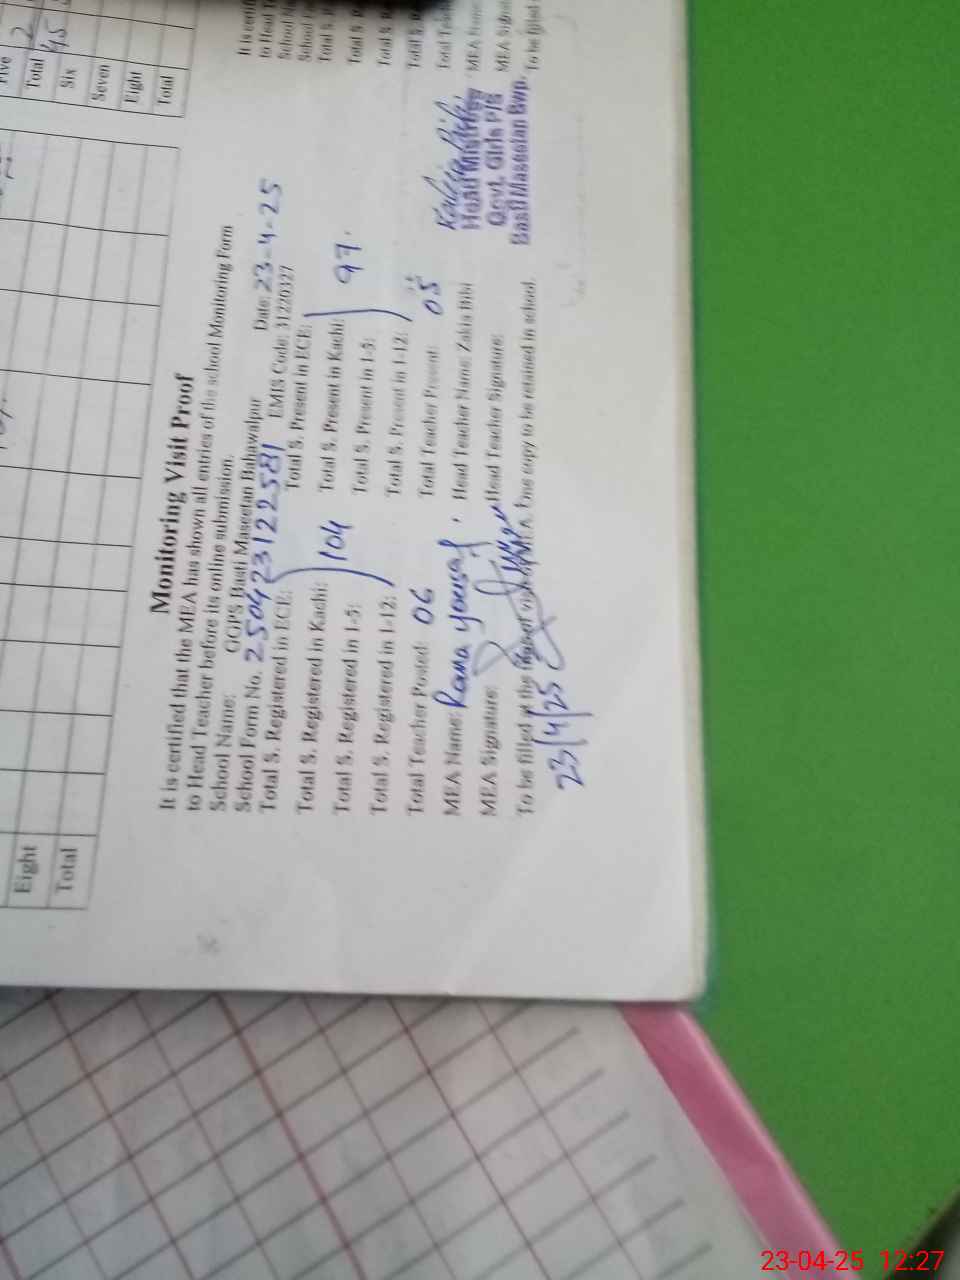 Five 2
Total 45
Six
Seven
Eight
Total
Eight
Total
Monitoring Visit Proof
It is certified that the MEA has shown all entries of the school Monitoring Form
to Head Teacher before its online submission.
School Name: GGPS Basti Maseetan Bahawalpur Date: 23-4-25
School Form No. 250423122581 EMIS Code: 31220327
Total S. Registered in ECE: Total S. Present in ECE:
Total S. Registered in Kachi: 104 Total S. Present in Kachi: 97.
Total S. Registered in 1-5: Total S. Present in 1-5:
Total S. Registered in 1-12: Total S. Present in 1-12:
Total Teacher Posted: 06 Total Teacher Present: 05
MEA Name: Rana yousaf. Head Teacher Name: Zakia Bibi
MEA Signature: Head Teacher Signature:
To be filled at the of visit MEA. One copy to be retained in school.
23/4/25
Head Mistress
Govt. Girls P/S
Basti Maseetan Bwp.
It is certif
to Head T
School N
School F
Total S.
Total S.
Total S.
Total S.
Total Tea
MEA Name
MEA Signat
To be filled
23-04-25 12:27